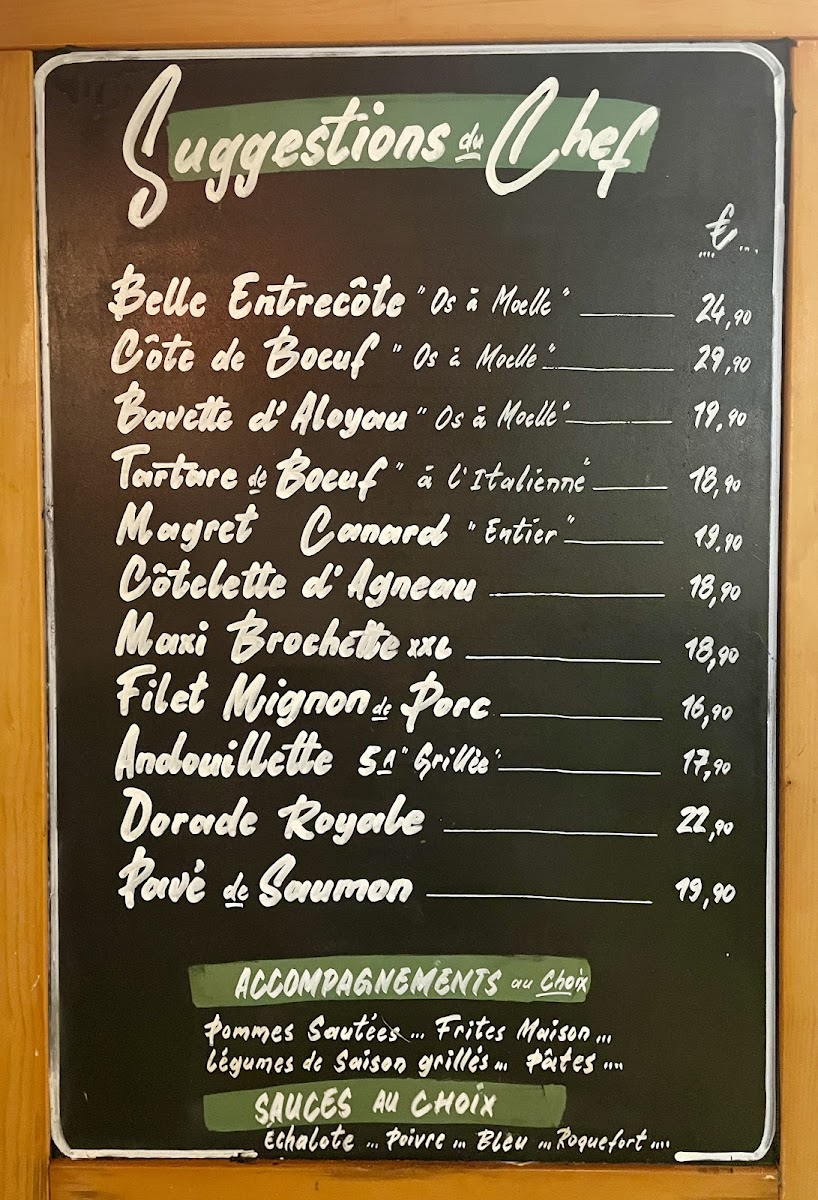 Suggestions du Chef
€
Belle Entrecôte "Os à Moelle" 24,90
Côte de Boeuf "Os à Moelle" 29,90
Bavette d'Aloyau "Os à Moelle" 19,90
Tartare de Boeuf "à l'Italienne" 18,90
Magret Canard "Entier" 19,90
Côtelette d'Agneau 18,90
Maxi Brochette XXL 18,90
Filet Mignon de Porc 16,90
Andouillette 5A "Grillée" 17,90
Dorade Royale 22,90
Pavé de Saumon 19,90
ACCOMPAGNEMENTS au Choix
Pommes Sautées ... Frites Maison ...
Légumes de Saison grillés ... Pâtes ....
SAUCES AU CHOIX
Echalote ... Poivre ... Bleu ... Roquefort ....